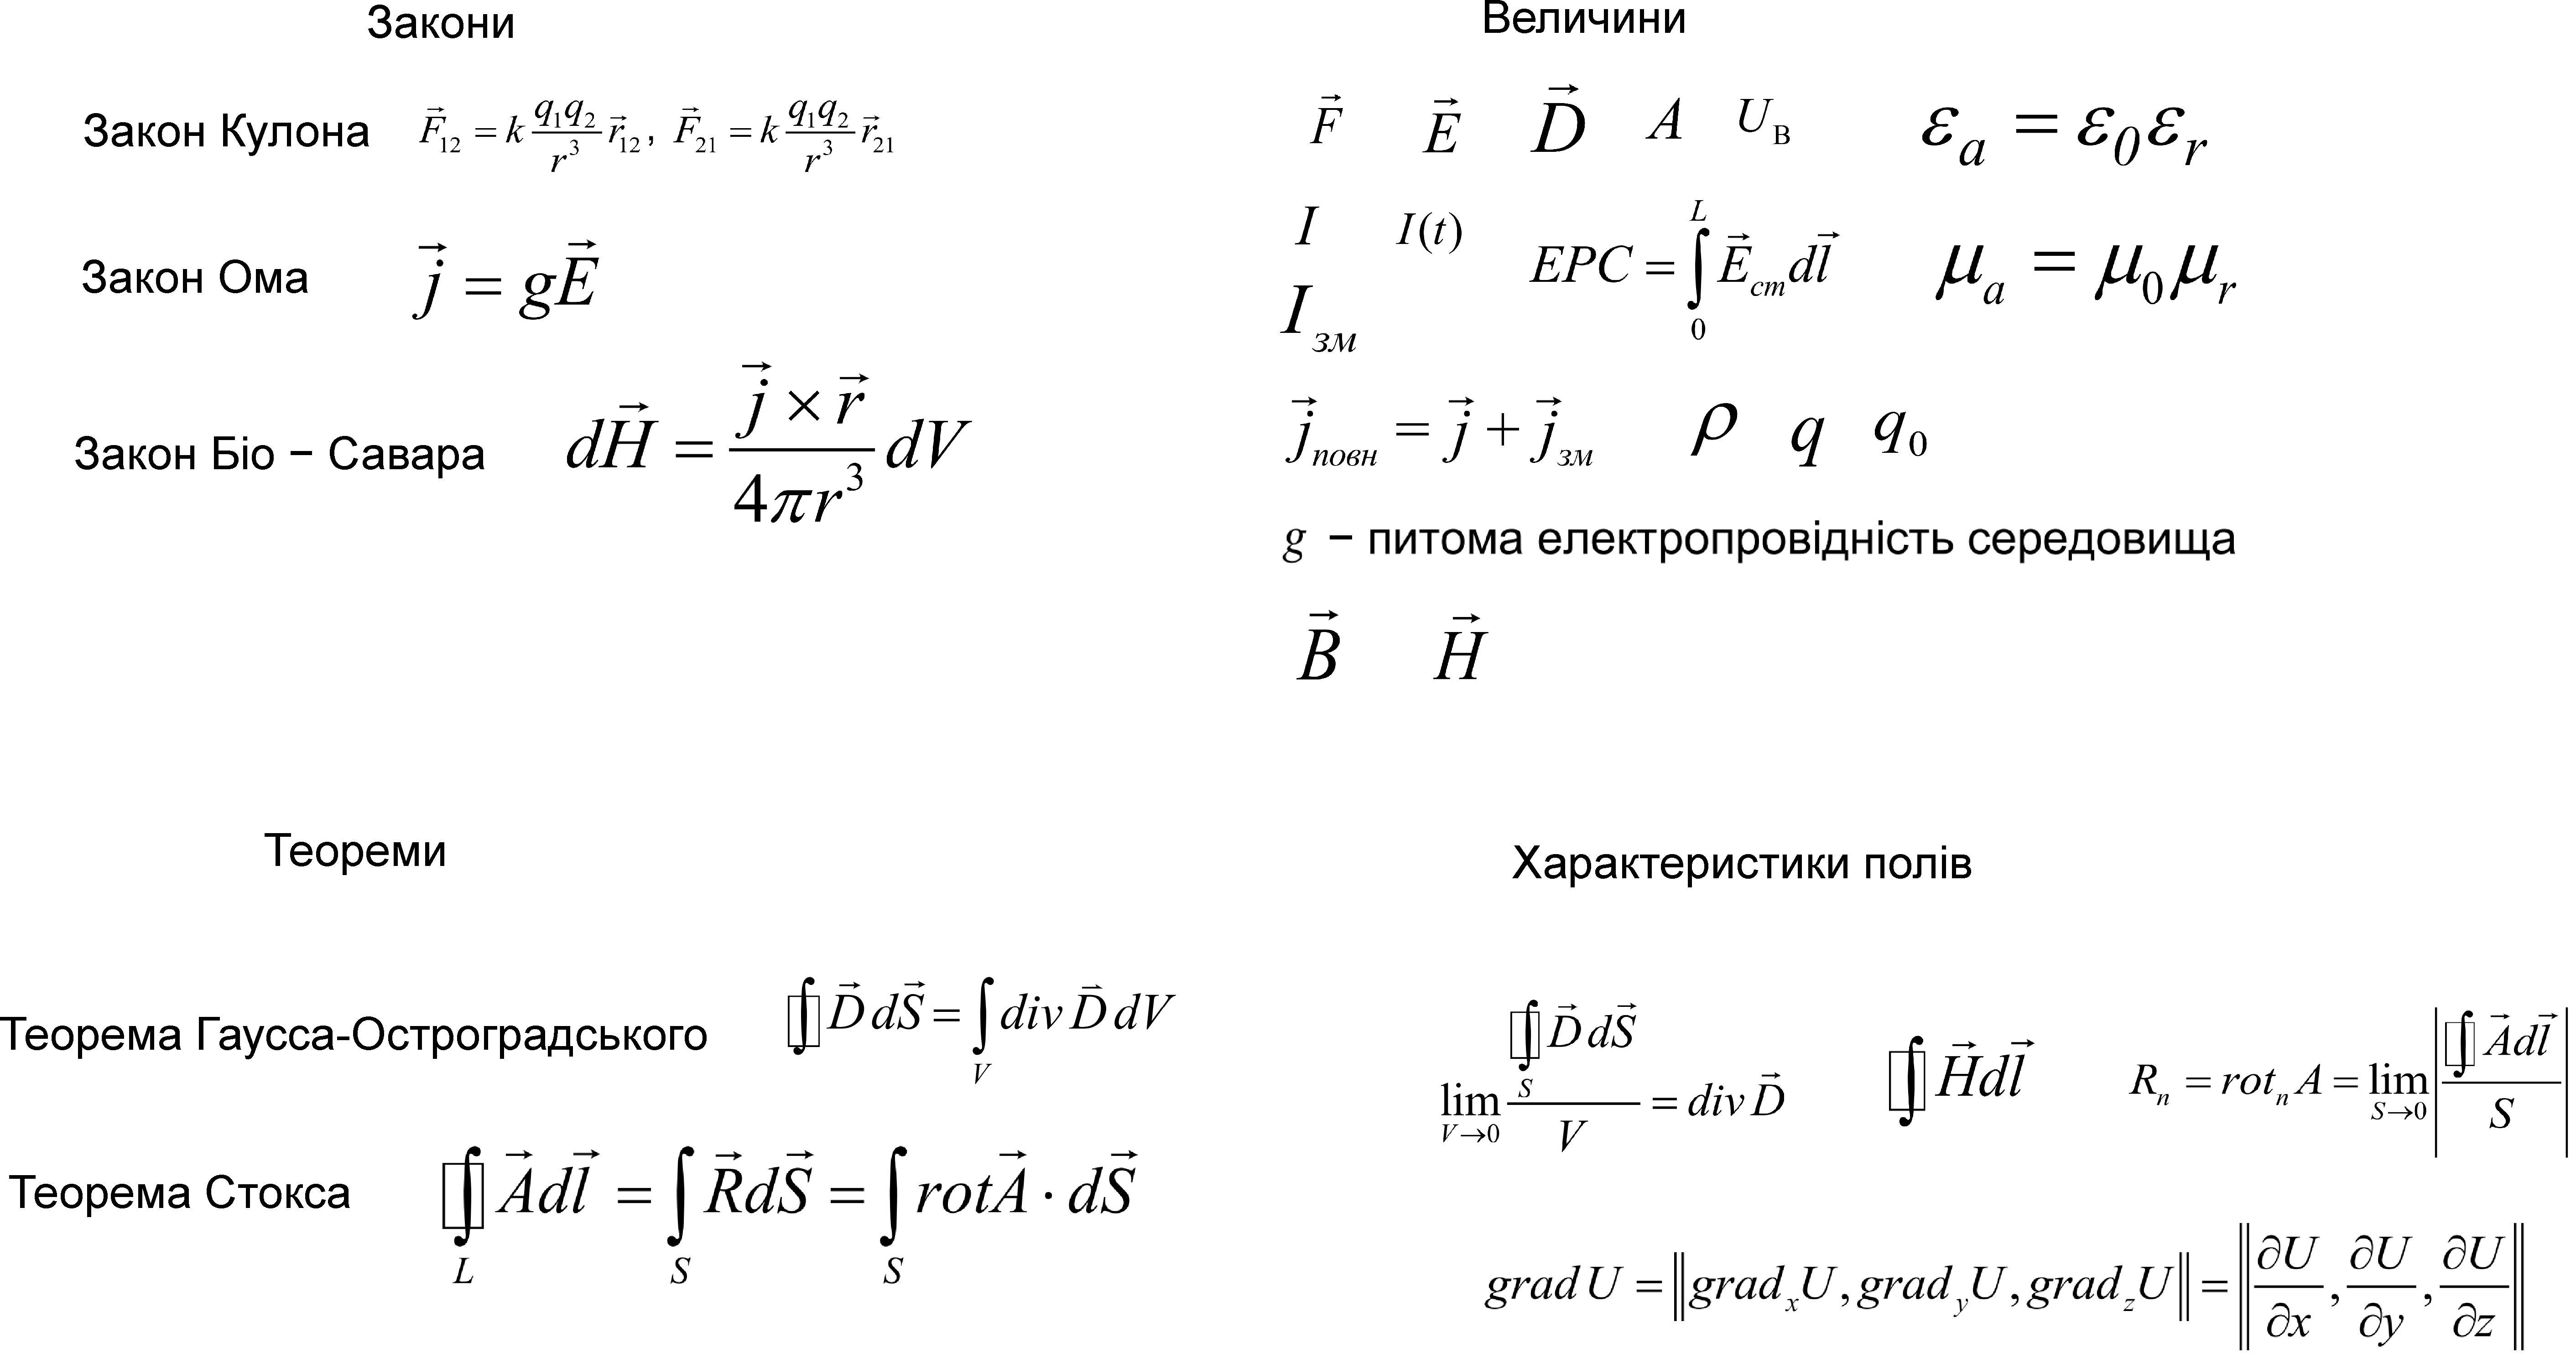 Закони
Закон Кулона $\vec{F}_{12} = k\frac{q_1 q_2}{r^3}\vec{r}_{12}, \vec{F}_{21} = k\frac{q_1 q_2}{r^3}\vec{r}_{21}$
Закон Ома $\vec{j} = g\vec{E}$
Закон Біо − Савара $d\vec{H} = \frac{\vec{j} \times \vec{r}}{4\pi r^3} dV$
Величини
$\vec{F}$ $\vec{E}$ $\vec{D}$ $A$ $U_{\text{В}}$ $\varepsilon_a = \varepsilon_0 \varepsilon_r$
$I$ $I(t)$ $ЕРС = \int_0^L \vec{E}_{ст} d\vec{l}$ $\mu_a = \mu_0 \mu_r$
$I_{зм}$
$\vec{j}_{повн} = \vec{j} + \vec{j}_{зм}$ $\rho$ $q$ $q_0$
$g$ − питома електропровідність середовища
$\vec{B}$ $\vec{H}$
Теореми
Теорема Гаусса-Остроградського $\oint \vec{D} d\vec{S} = \int_V div \vec{D} dV$
Теорема Стокса $\oint_L \vec{A} d\vec{l} = \int_S \vec{R} d\vec{S} = \int_S rot\vec{A} \cdot d\vec{S}$
Характеристики полів
$\lim_{V \to 0} \frac{\oint_S \vec{D} d\vec{S}}{V} = div \vec{D}$ $\oint \vec{H} d\vec{l}$ $R_n = rot_n A = \lim_{S \to 0} \left| \frac{\oint \vec{A} d\vec{l}}{S} \right|$
$grad\, U = \left\| grad_x U, grad_y U, grad_z U \right\| = \left\| \frac{\partial U}{\partial x}, \frac{\partial U}{\partial y}, \frac{\partial U}{\partial z} \right\|$